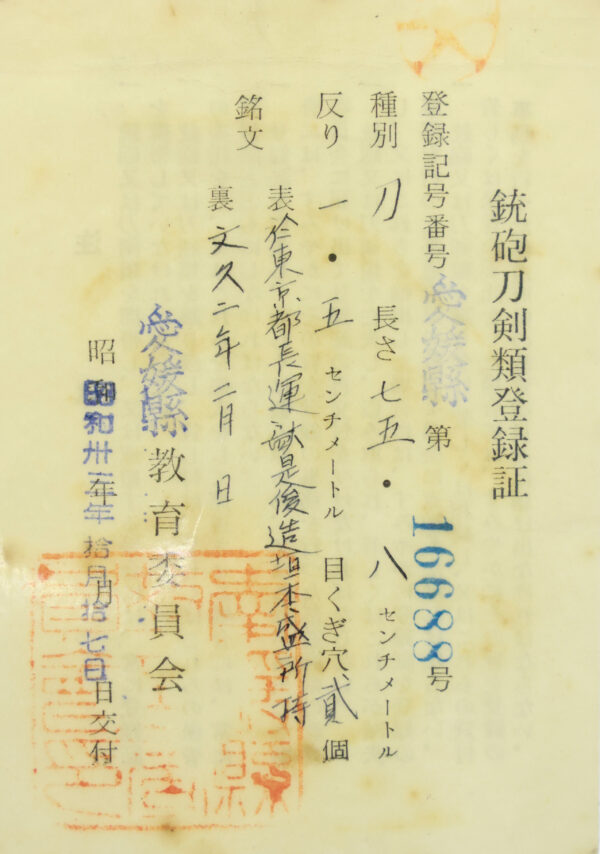 銃砲刀剣類登録証
登録記号番号 愛媛縣 第 16688号
種別 刀 長さ 七五・八 センチメートル
反り 一・五 センチメートル 目くぎ穴 貳 個
銘文
表 於東京都長運斎是俊造坦本盛所持
裏 文久二年二月 日
愛媛縣教育委員会
昭和卅二年拾月拾七日交付